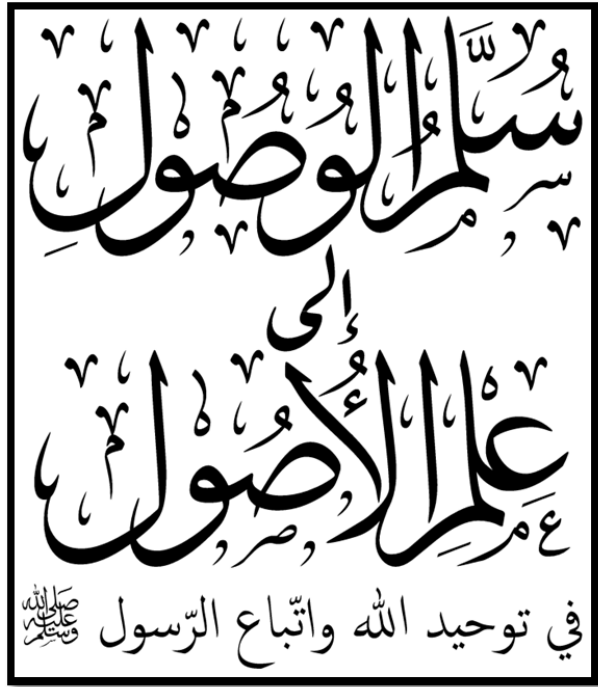 سُلَّمُ الْوُصُولِ
إلى
عِلْمِ الْأُصُولِ
في توحيد الله واتّباع الرّسول ﷺ